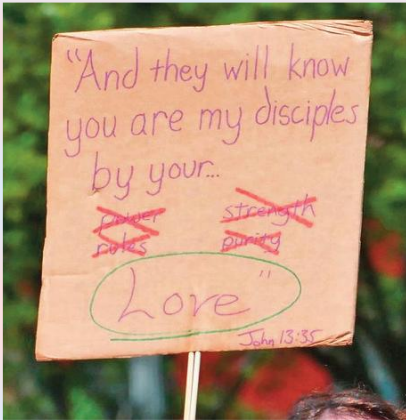 "And they will know
you are my disciples
by your...
power strength
rules purity
Love"
John 13:35